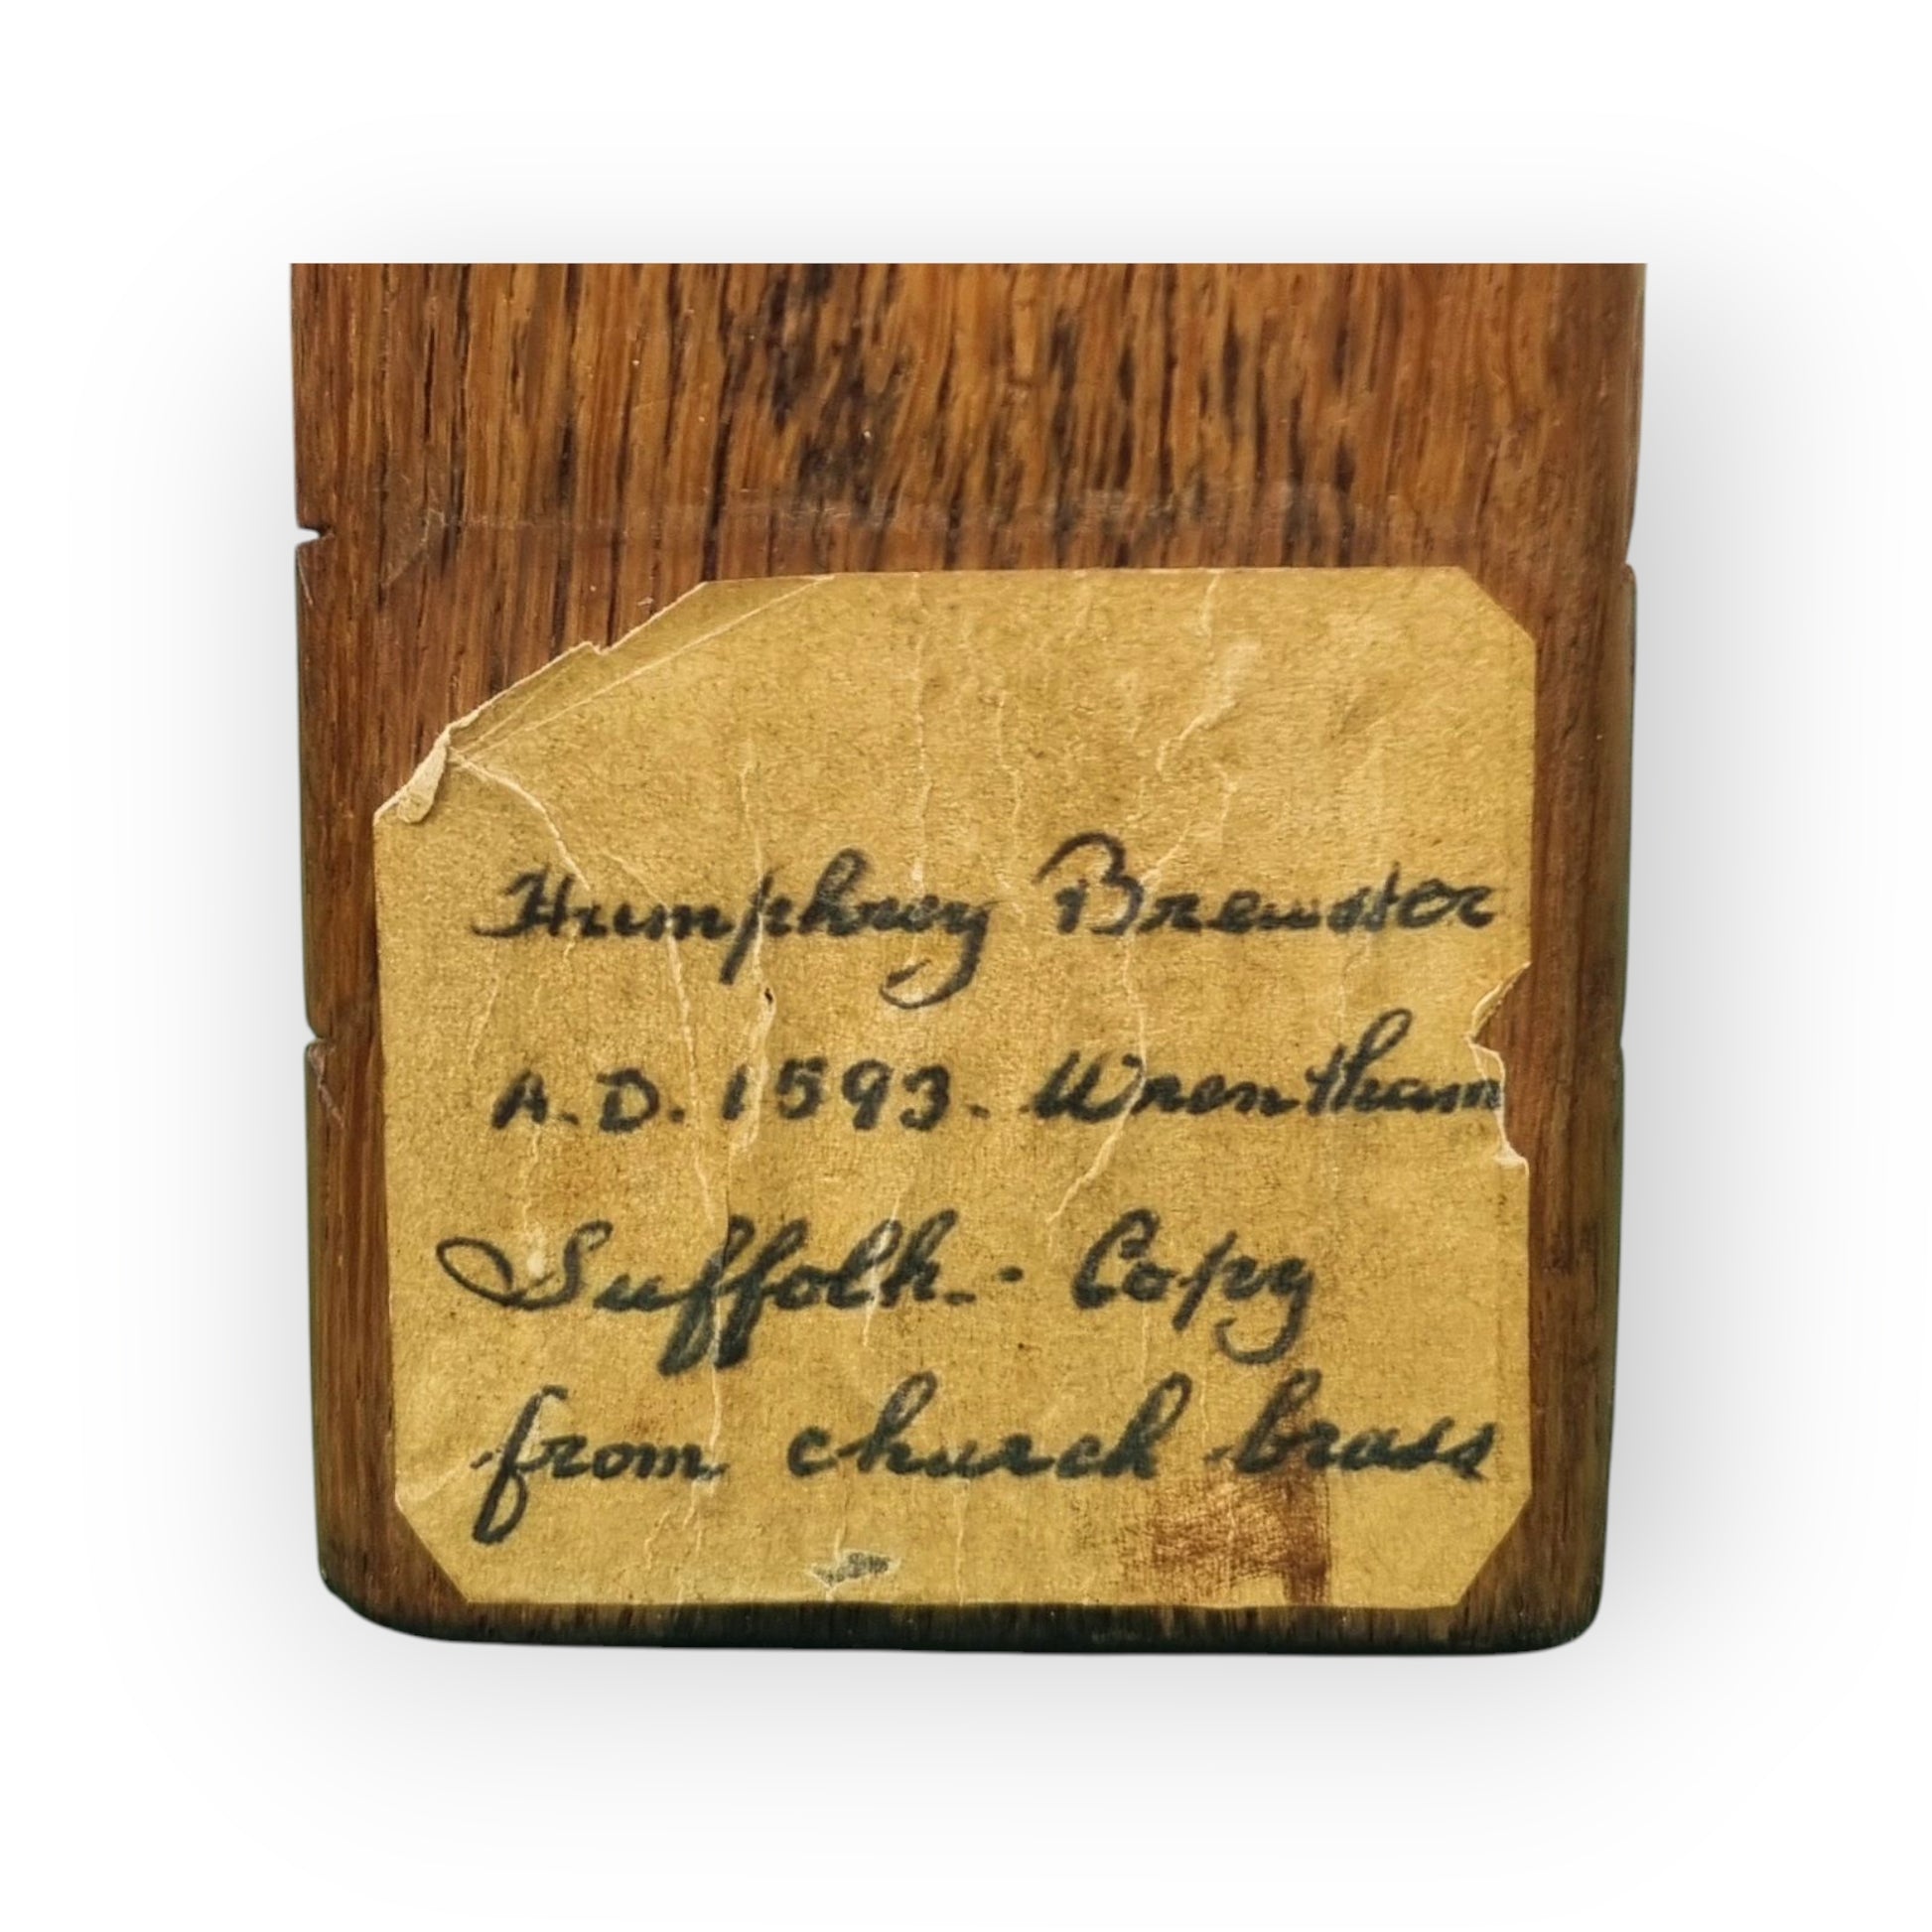 Humphrey Brewster
A.D. 1593. Wrentham
Suffolk. - Copy
from church brass